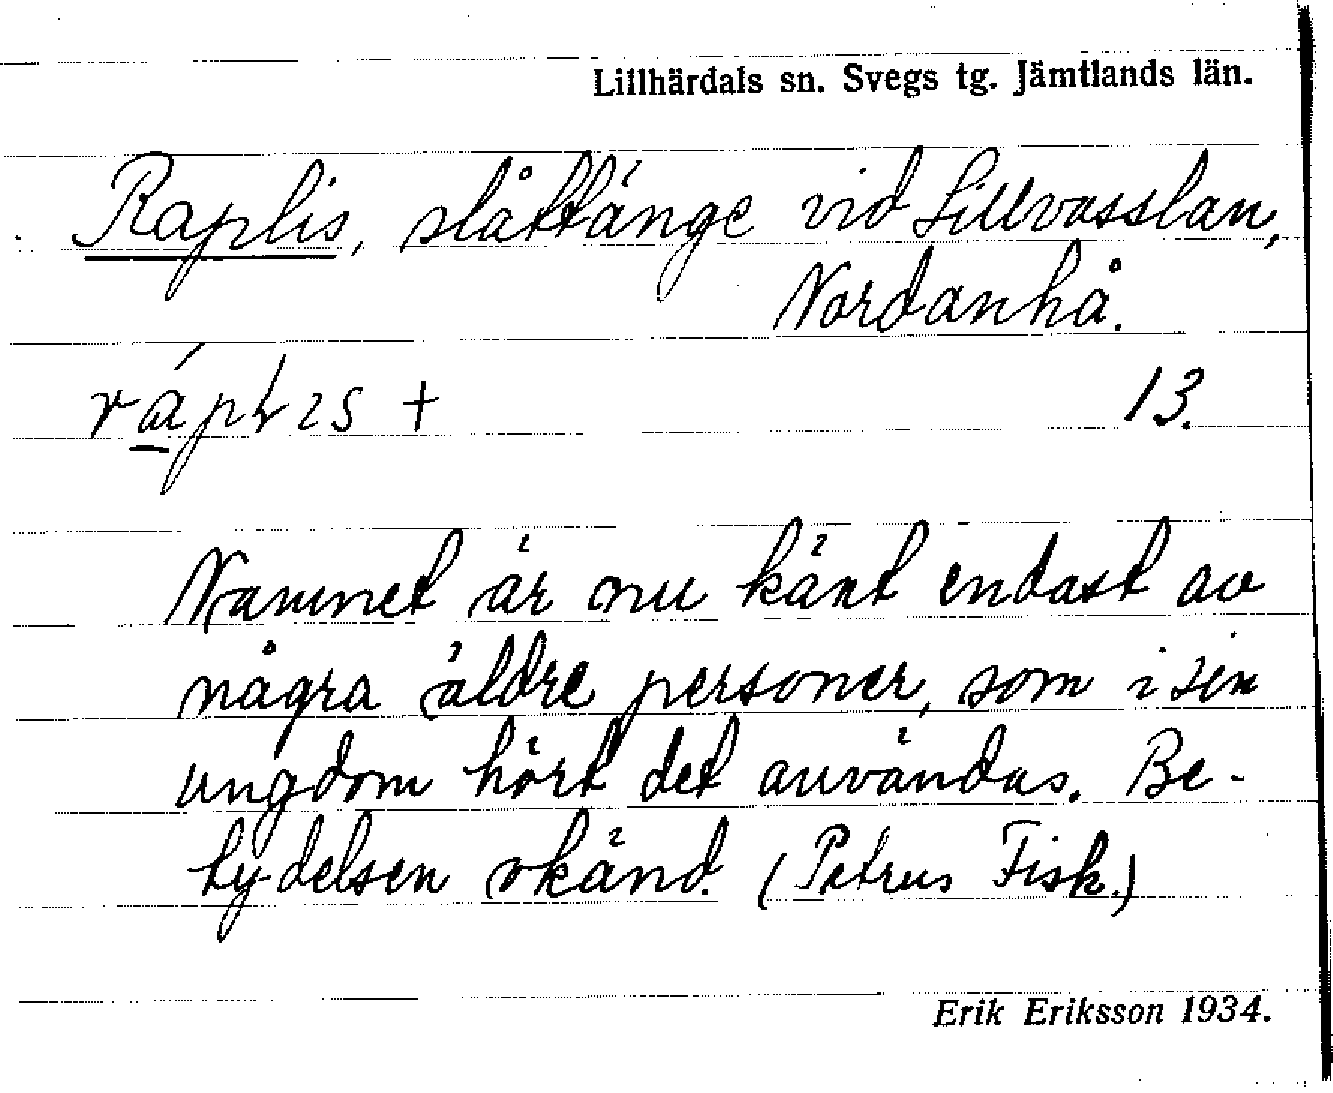 Lillhärdals sn. Svegs tg. Jämtlands län.
Raplis, slåttänge vid Lillvasslan,
Nordanhå.
13.
Namnet är nu känt endast av
några äldre personer, som i sin
ungdom hört det användas. Be-
tydelsen okänd. (Petrus Fisk.)
Erik Eriksson 1934.